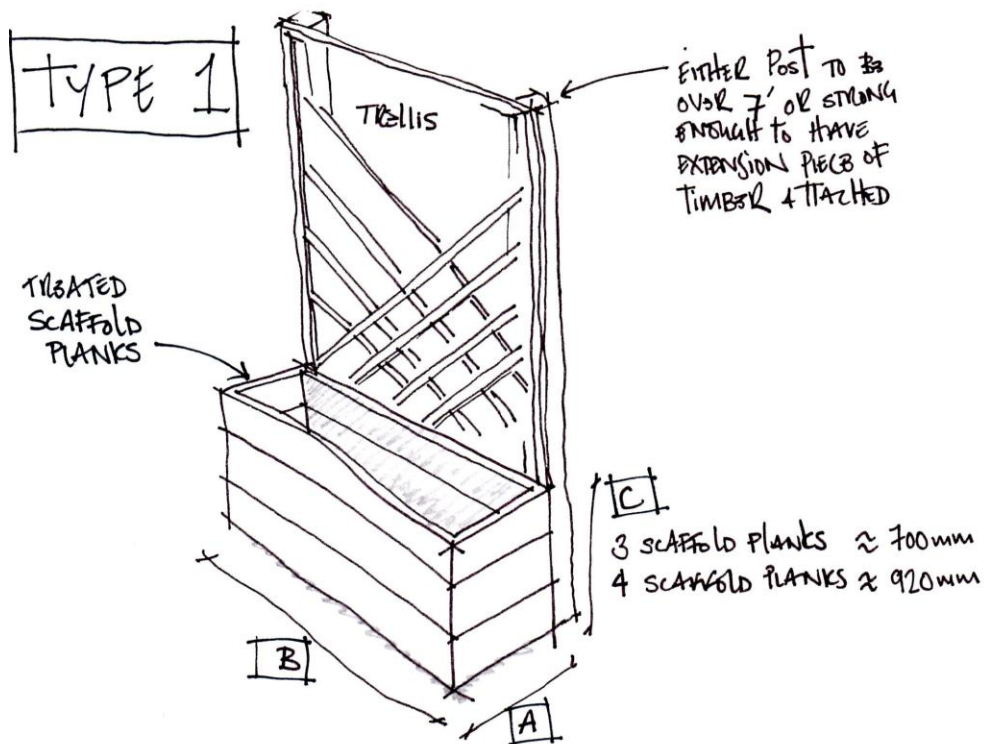 TYPE 1
TRELLIS
EITHER POST TO BE
OVER 7' OR STRONG
ENOUGH TO HAVE
EXTENSION PIECE OF
TIMBER ATTACHED
TREATED
SCAFFOLD
PLANKS
C
3 SCAFFOLD PLANKS ≈ 700mm
4 SCAFFOLD PLANKS ≈ 920mm
B
A